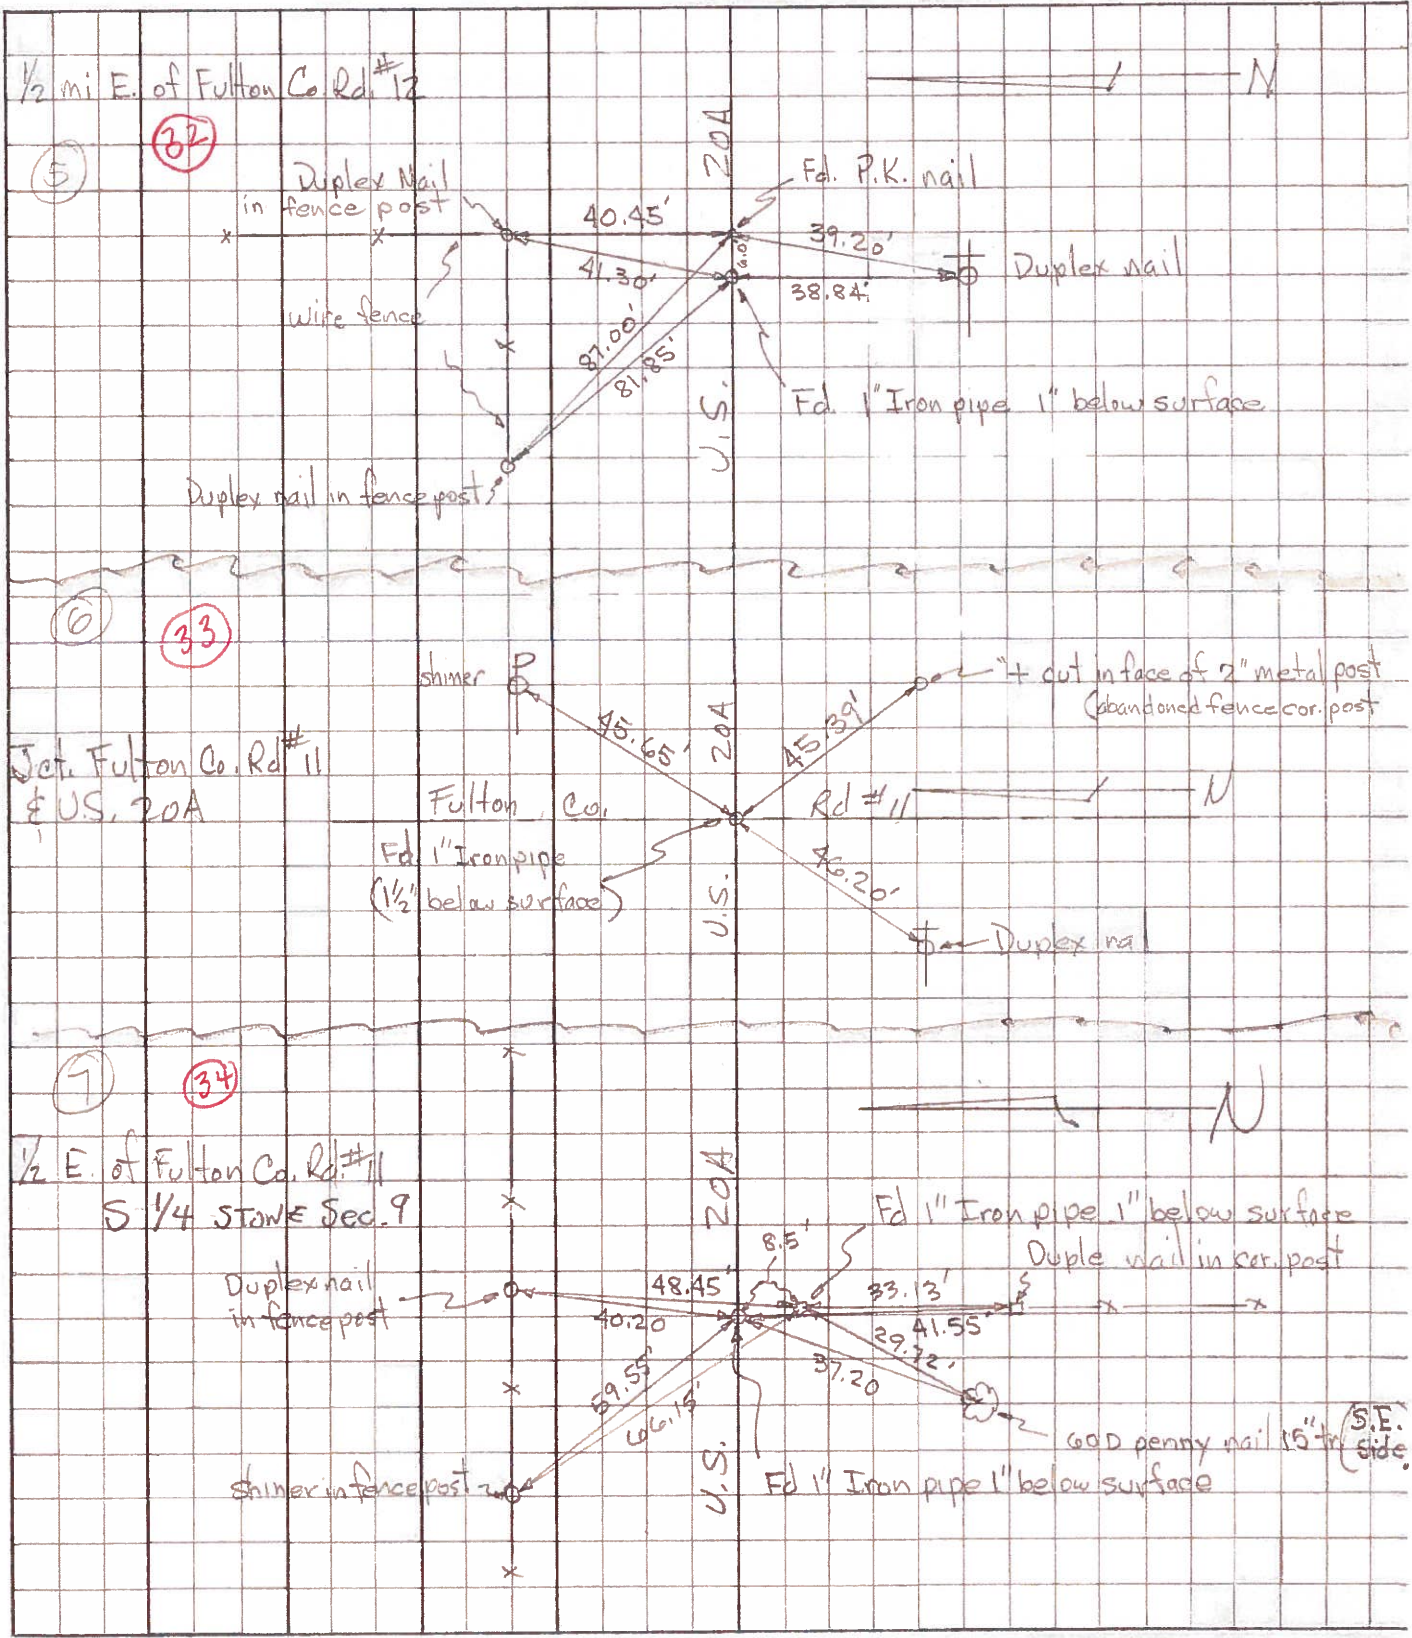 1/2 mi E. of Fulton Co. Rd. #12
N
32
5
20A
Fd. P.K. nail
Duplex Nail
in fence post
40.45'
39.20'
6.0'
Duplex nail
41.30'
38.84'
wire fence
87.00'
81.85'
U.S.
Fd. 1" Iron pipe 1" below surface
Duplex nail in fence post
6
33
shiner
"+ cut in face of 2" metal post
(abandoned fence cor. post
45.65'
20A
45.39'
Jct. Fulton Co. Rd #11
& U.S. 20A
Fulton Co.
Rd #11
N
Fd 1" Iron pipe
(1½" below surface)
46.20'
U.S.
Duplex nail
7
34
N
1/2 E. of Fulton Co. Rd. #11
S 1/4 STONE Sec. 9
20A
Fd 1" Iron pipe 1" below surface
8.5'
Duple nail in cor. post
Duplex nail
in fence post
48.45'
33.13'
40.20
41.55'
29.72'
37.20
59.55'
66.15'
60D penny nail 15" tr (S.E. side.
Shiner in fence post
U.S.
Fd 1" Iron pipe 1" below surface